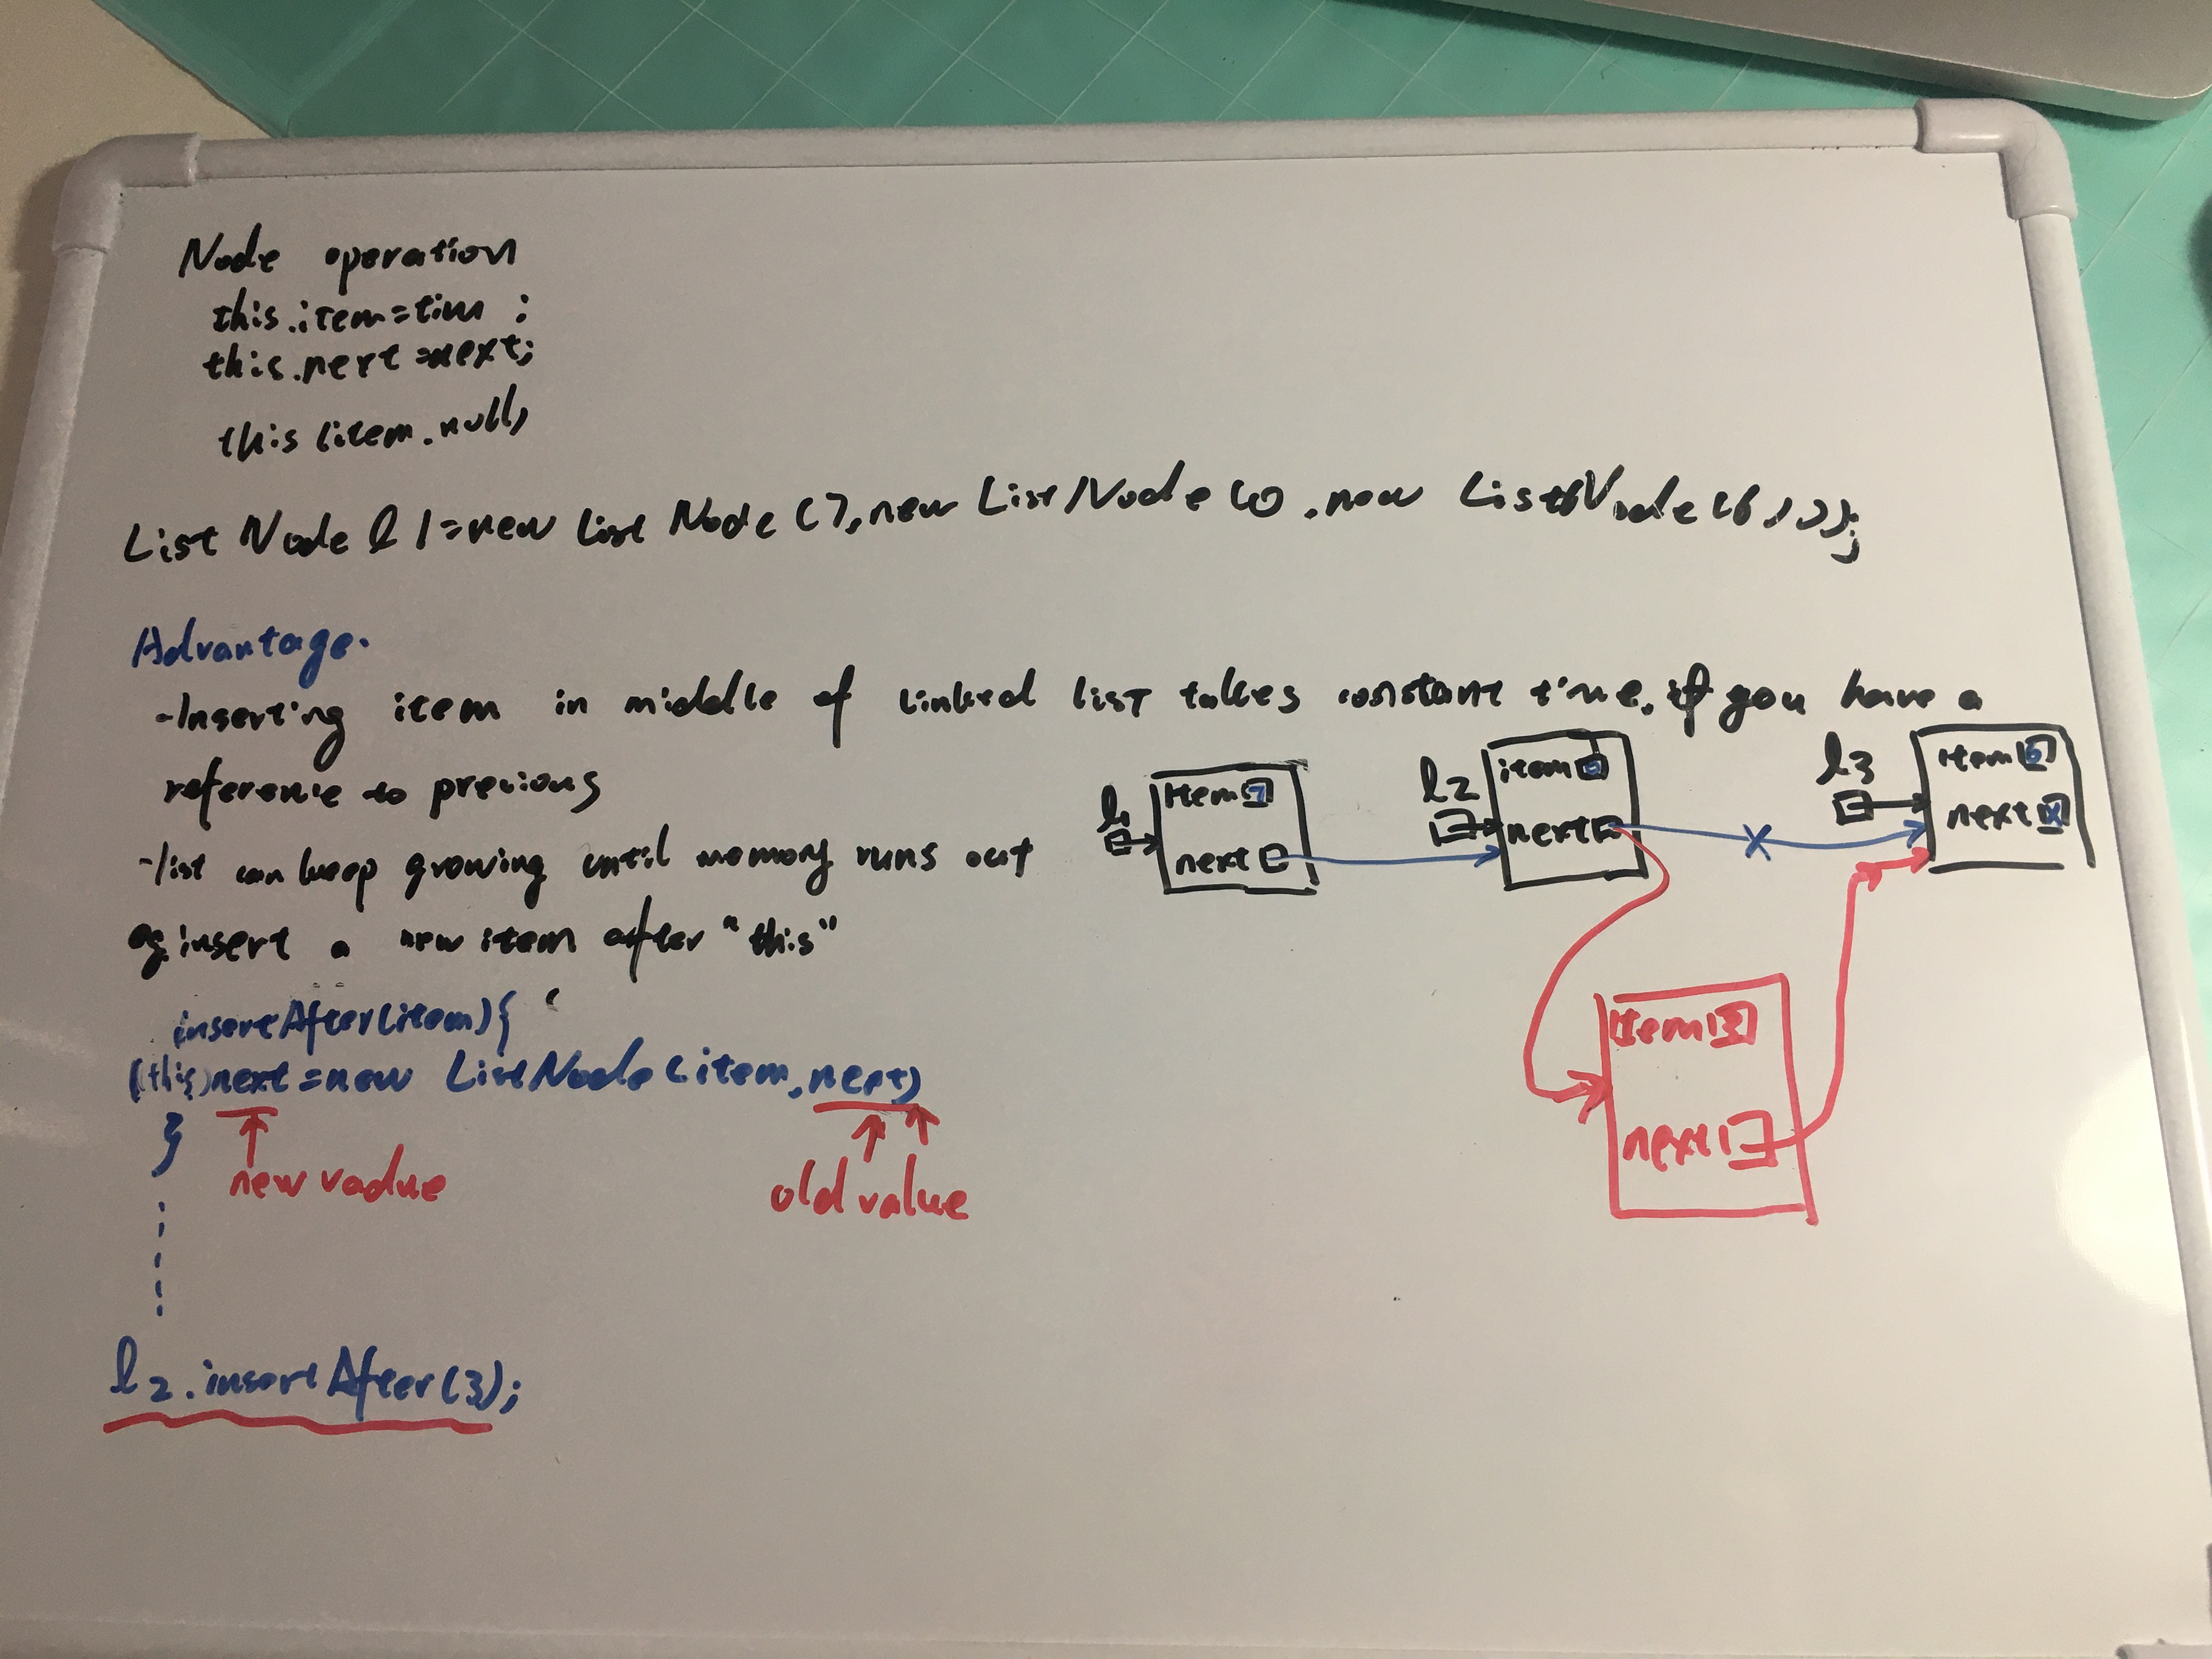 Node operation
this.item=tim ;
this.next=next;
this(item.null)
List Node l1=new List Node (7,new ListNode (0 ,new ListNode(6,)));
Advantage.
-Inserting item in middle of Linked list takes constant time, if you have a
reference to previous
-list can keep growing until memory runs out
eg.insert a new item after "this"
insertAfter(item){
(this)next=new ListNode(item,next)
}
new vadue
old value
l2.insertAfter(3);
l1
Item 7
next
l2
item 0
next
l3
Item 6
next X
X
Item 3
next